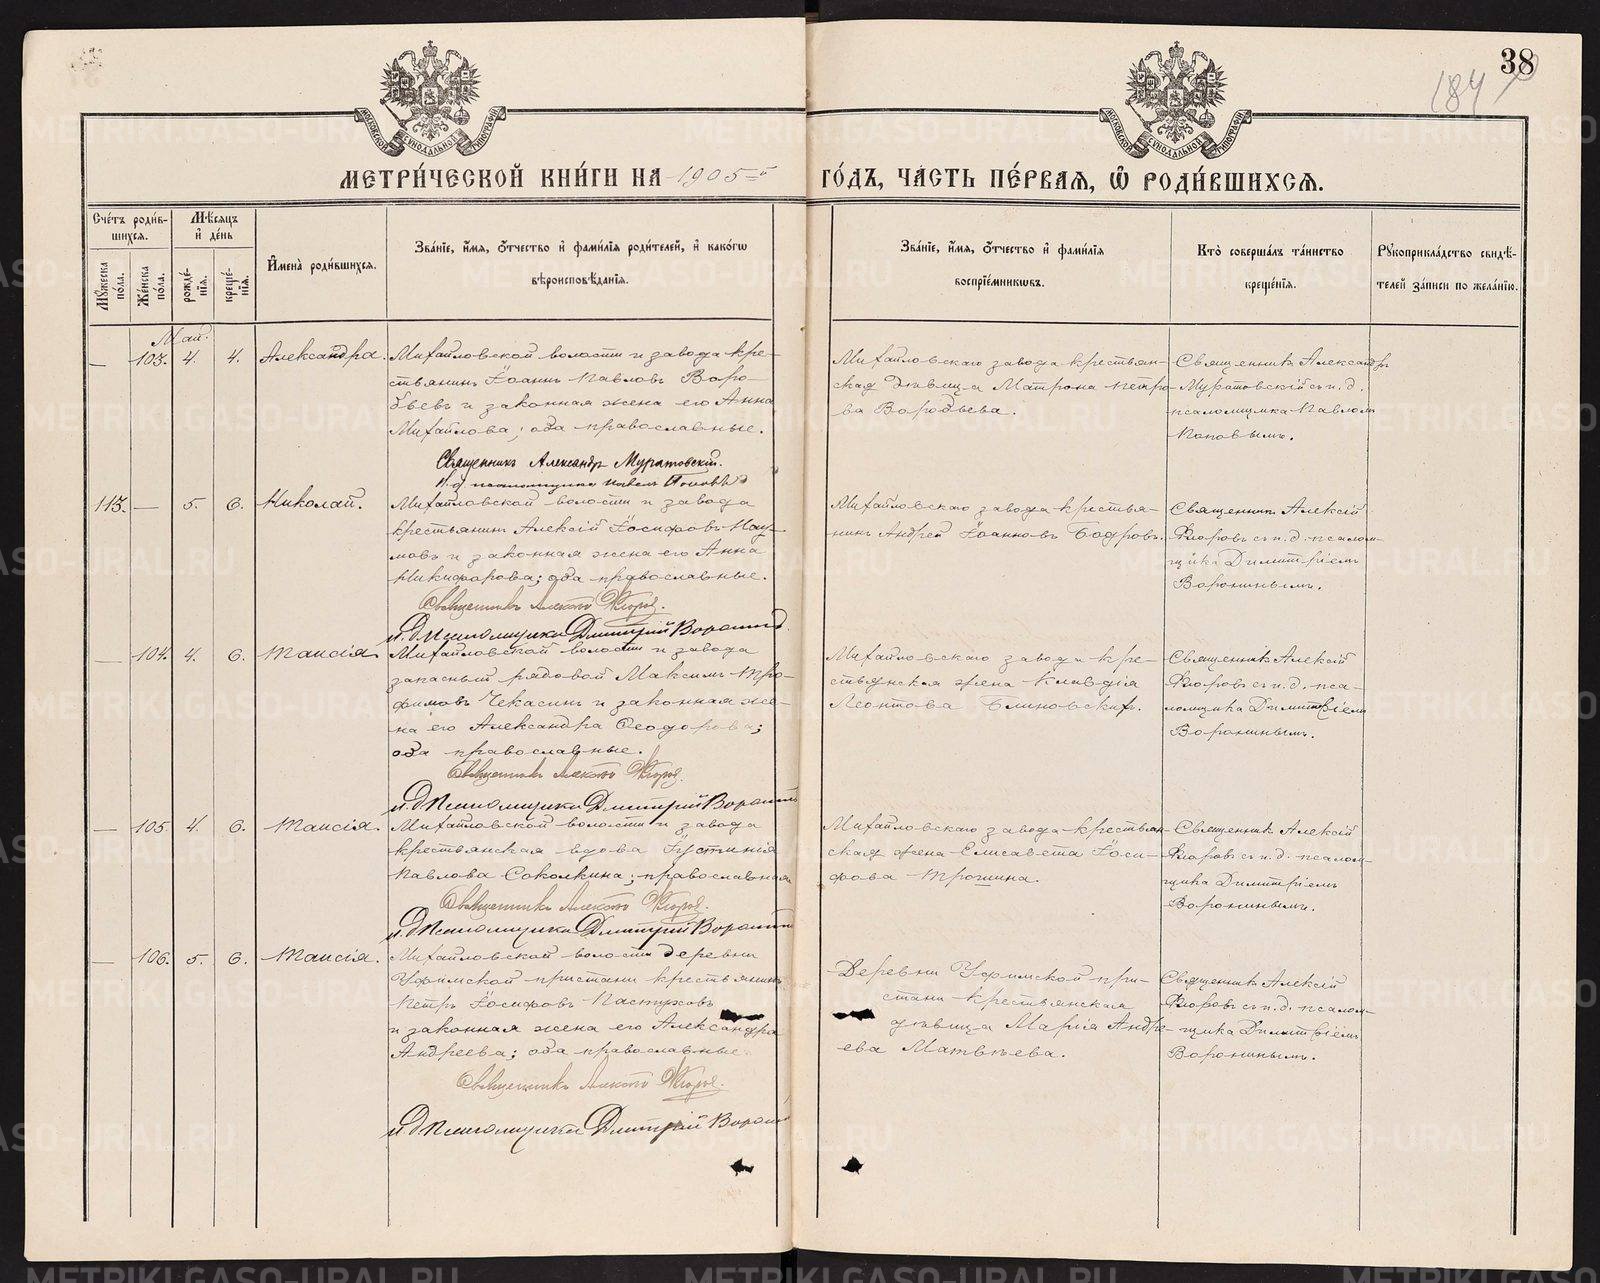 38
184
МОСКОВСКОЙ СѴНОДАЛЬНОЙ ТИПОГРАФІИ
МОСКОВСКОЙ СѴНОДАЛЬНОЙ ТИПОГРАФІИ
МЕТРИ́ЧЕСКОЙ КНИ́ГИ НА 1905-й ГО́ДЪ, ЧА́СТЬ ПЕ́РВАѦ, Ѡ҆ РОДИ́ВШИХСѦ.
Сче́тъ роди́в-
шихсѧ.
Мѣ́сѧцъ
и҆ де́нь
Мꙋ́жеска
по́ла.
Же́нска
по́ла.
рожде́-
нїѧ.
креще́-
нїѧ.
И҆мена̀ роди́вшихсѧ.
Зва́нїе, и҆́мѧ, ѻ҆́тчество и҆ фами́лїѧ роди́телей, и҆ како́гѡ
вѣроисповѣ́данїѧ.
Зва́нїе, и҆́мѧ, ѻ҆́тчество и҆ фами́лїѧ
воспрїе́мникѡвъ.
Кто̀ соверша́лъ та́инство
креще́нїѧ.
Рꙋкоприкла́дство свидѣ́-
телей за́писи по жела́нїю.
Май.
— 103. 4. 4. Александра.
Михайловской волости и завода кре-
стьянинъ Іоаннъ Павловъ Воро-
бьевъ и законная жена его Анна
Михайлова; оба православные.
Священникъ Александръ Муратовскій.
И. д. псаломщика Павелъ Поповъ
Михайловскаго завода крестьян-
ская дѣвица Матрона Петро-
ва Воробьева.
Священникъ Александръ
Муратовскій съ и. д.
псаломщика Павломъ
Поповымъ.
113. — 5. 6. Николай.
Михайловской волости и завода
крестьянинъ Алексій Іосифовъ Нау-
мовъ и законная жена его Анна
Никифорова; оба православные.
Священникъ Алексій Флоровъ.
и. д. псаломщика Дмитрій Воронинъ
Михайловскаго завода крестья-
нинъ Андрей Іоанновъ Бодровъ.
Священникъ Алексій
Флоровъ съ и. д. псалом-
щика Димитріемъ
Воронинымъ.
— 104. 4. 6. Таисія.
Михайловской волости и завода
запасный рядовой Максимъ Тро-
фимовъ Чекасинъ и законная же-
на его Александра Ѳеодорова;
оба православные.
Священникъ Алексій Флоровъ.
и. д. псаломщика Дмитрій Воронинъ
Михайловскаго завода кре-
стьянская жена Клавдія
Леонтова Блиновскихъ.
Священникъ Алексій
Флоровъ съ и. д. пса-
ломщика Димитріемъ
Воронинымъ.
— 105. 4. 6. Таисія.
Михайловской волости и завода
крестьянская вдова Іустинія
Павлова Соколкина; православная
Священникъ Алексій Флоровъ.
и. д. псаломщика Дмитрій Воронинъ
Михайловскаго завода крестьян-
ская жена Елисавета Іоси-
фова Трошина.
Священникъ Алексій
Флоровъ съ и. д. псалом-
щика Димитріемъ
Воронинымъ.
— 106. 5. 6. Таисія.
Михайловской волости деревни
Уфимской пристани крестьянинъ
Петръ Іосифовъ Пастуховъ
и законная жена его Александра
Андреева; оба православные.
Священникъ Алексій Флоровъ.
и. д. псаломщика Дмитрій Воронинъ
Деревни Уфимской при-
стани крестьянская
дѣвица Марія Андре-
ева Матвѣева.
Священникъ Алексій
Флоровъ съ и. д. псалом-
щика Димитріемъ
Воронинымъ.